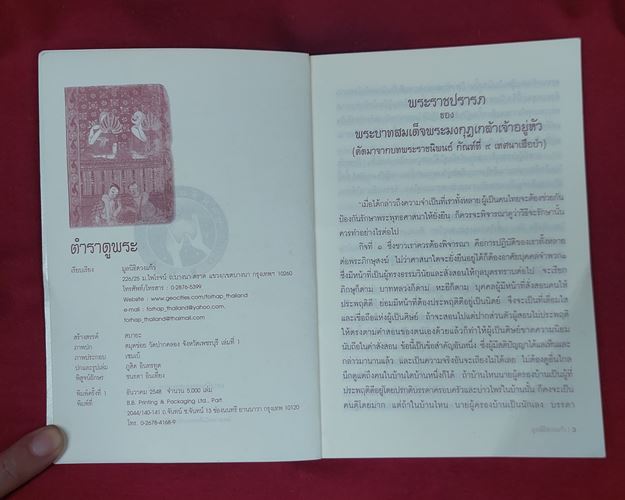 ตำราดูพระ
เรียบเรียง มูลนิธิดวงแก้ว
226/25 ม.ไพโรจน์ ถ.บางนา-ตราด แขวง/เขตบางนา กรุงเทพฯ 10260
โทรศัพท์/โทรสาร : 0-2876-5399
Website : www.geocities.com/forhap_thailand
e-mail : forhap_thailand@yahoo.com,
forhap_thailand@thaimail.com
สร้างสรรค์ สมายะ
ภาพปก สมุดข่อย วัดปากคลอง จังหวัดเพชรบุรี เล่มที่ 1
ภาพประกอบ เชมเบ้
ปกและรูปเล่ม ภูสิต อินทรทูต
พิสูจน์อักษร ชนยดา อินเที่ยง
พิมพ์ครั้งที่ 1 ธันวาคม 2548 จำนวน 5,000 เล่ม
พิมพ์ที่ B.B. Printing & Packaging Ltd., Part
2044/140-141 ถ.จันทน์ ซ.จันทน์ 13 ช่องนนทรี ยานนาวา กรุงเทพฯ 10120
โทร. 0-2678-4168-9
พระราชปรารภ
ของ
พระบาทสมเด็จพระมงกุฎเกล้าเจ้าอยู่หัว
(คัดมาจากบทพระราชนิพนธ์ กัณฑ์ที่ ๙ เทศนาเสือป่า)
"เมื่อได้กล่าวถึงความจำเป็นที่เราทั้งหลายผู้เป็นคนไทยจะต้องช่วยกัน
ป้องกันรักษาพระพุทธศาสนาให้ยั่งยืน ก็ควรจะพิจารณาดูว่าวิธีจะรักษานั้น
ควรทำอย่างไรต่อไป
กิจที่ ๑ ซึ่งชาวเราควรต้องพิจารณา คือการปฏิบัติของเราทั้งหลาย
ต่อพระภิกษุสงฆ์ ไม่ว่าศาสนาใดจะยั่งยืนอยู่ได้ก็ต้องอาศัยบุคคลจำพวก๑
ซึ่งมีหน้าที่เป็นผู้ทรงธรรมวินัยและสั่งสอนให้กุลบุตรทราบต่อไป จะเรียก
ภิกษุก็ตาม บาทหลวงก็ตาม หะยีก็ตาม บุคคลผู้มีหน้าที่สั่งสอนคนให้
ประพฤติดี ย่อมมีหน้าที่ต้องประพฤติดีอยู่เป็นนิตย์ จึงจะเป็นที่เลื่อมใส
และเชื่อถือแห่งผู้เป็นศิษย์ ถ้าจะสอนไปแต่ปากส่วนตัวผู้สอนไม่ประพฤติ
ให้ตรงตามคำสอนของตนเองด้วยแล้วก็ทำให้ผู้เป็นศิษย์ขาดความนิยม
นับถือในคำสั่งสอน ข้อนี้เป็นข้อสำคัญอันหนึ่ง ซึ่งผู้มีสติปัญญาได้แลเห็นและ
กล่าวมานานแล้ว และเป็นความจริงอันจะเถียงไม่ได้เลย ไม่ต้องดูอื่นไกล
นึกดูแต่ถึงคนในบ้านใดบ้านหนึ่งก็ได้ ถ้าบ้านไหนนายผู้ครองบ้านเป็นผู้ที่
ประพฤติดีอยู่โดยปรกติบรรดาครอบครัวและบ่าวไพร่ในบ้านนั้น ก็คงจะเป็น
คนดีโดยมาก แต่ถ้าในบ้านไหน นายผู้ครองบ้านเป็นนักเลง บรรดา
3